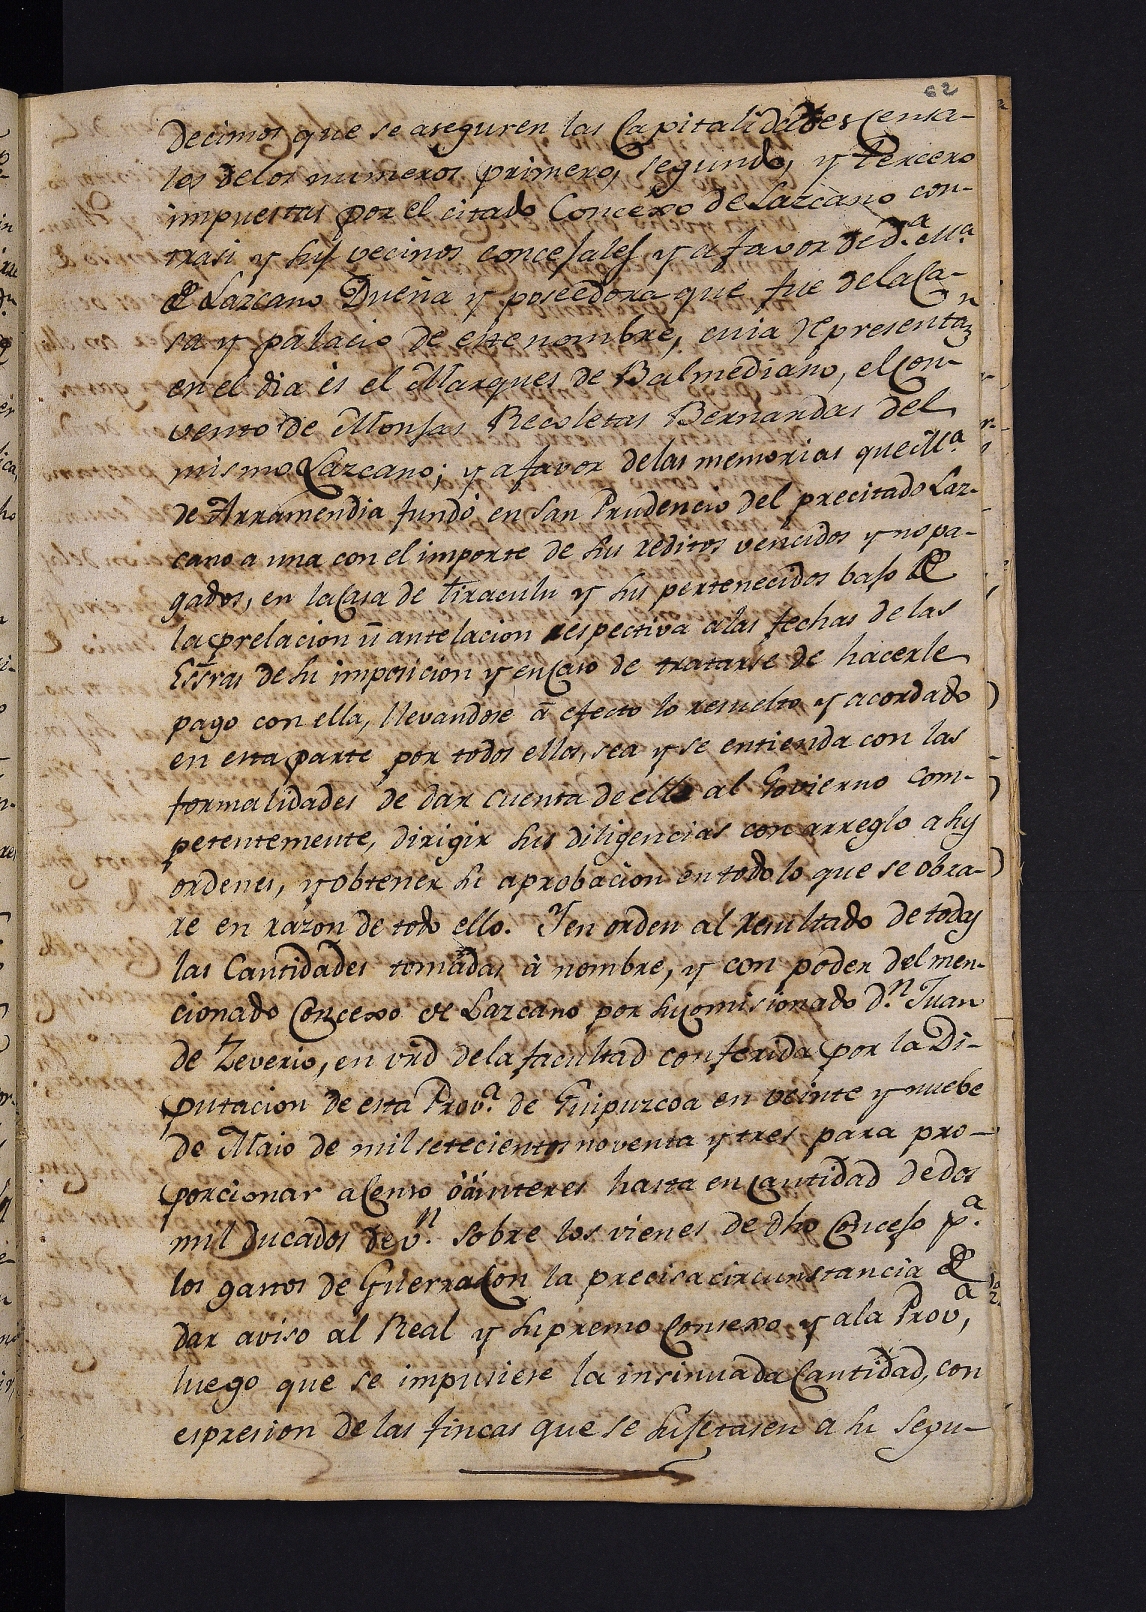 62
decimos que se aseguren las Capitalidades Censa-
les delos numeros primero, segundo, y tercero
impuestas por el citado Concexo de Lazcano con-
trasi y sus vecinos concejales y a favor de d.ª M.ª
de Lazcano Dueña y poseedora que fue dela Ca-
sa y palacio de este nombre, cuia representaz.n
en el dia es el Marques de Balmediano, el Con-
vento de Monjas Recoletas Bernardas del
mismo Lazcano; y a favor delas memorias que M.ª
de Arramendia fundó en San Prudencio del precitado Laz-
cano a una con el importe de sus reditos vencidos y nopa-
gados, en la Casa de Tiraculu y sus pertenecidos bajo de
la prelacion ü antelacion respectiva alas fechas de las
Essras de su imposicion y en Caso de tratarse de hacerle
pago con ella, llevandose â efecto lo resuelto y acordado
en esta parte por todos ellos, sea y se entienda con las
formalidades de dar cuenta de ello al Govierno com-
petentemente, dirigir sus diligencias con arreglo a sus
ordenes, y obtener su aprobacion en todo lo que se obra-
re en razon de todo ello. Y en orden al resultado de todas
las Cantidades tomadas à nombre, y con poder del men-
cionado Concexo de Lazcano por su Comisionado D.n Juan
de Zeverio, en vrd dela facultad conferida por la Di-
putacion de esta Prov.ª de Guipuzcoa en veinte y nuebe
de Maio de mil setecientos noventa y tres para pro-
porcionar a Censo óàinteres hasta en Cantidad de dos
mil ducados de v.n sobre los vienes de dho Concejo p.ª
los gastos de Guerra Con la precisa circunstancia de
dar aviso al Real y supremo Consexo y ala Prov.ª,
luego que se impusiese la insinuada Cantidad, con
espresion de las fincas que se sujetasen a su segu-